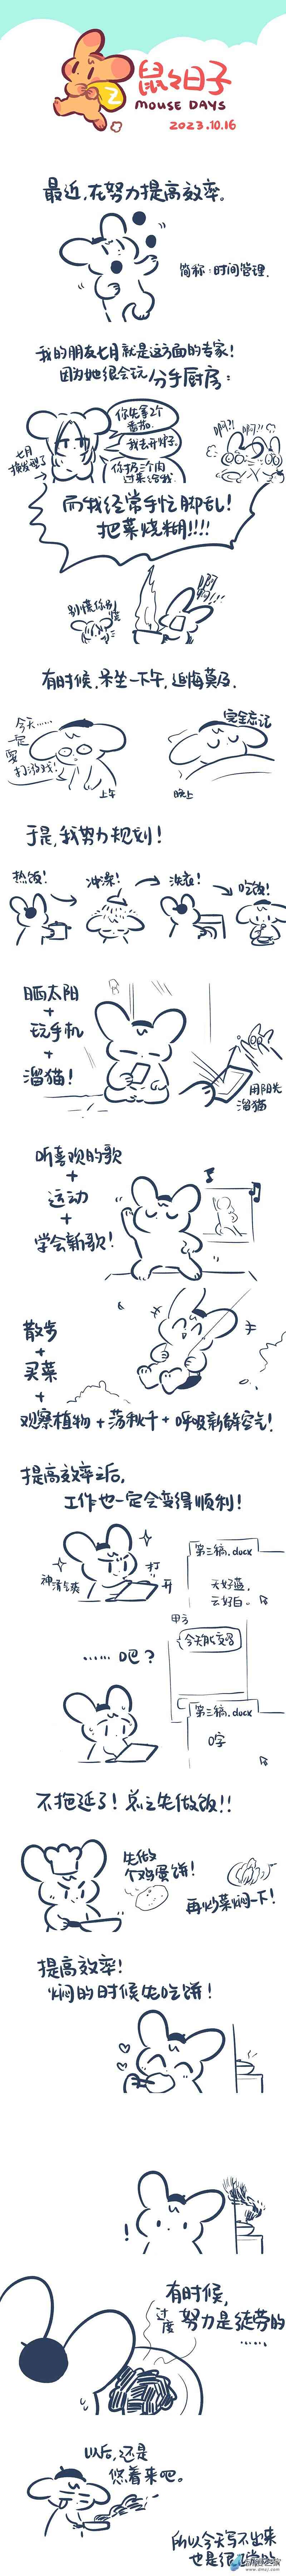 鼠鼠日子
MOUSE DAYS
2023.10.16
最近,在努力提高效率。
简称:时间管理.
我的朋友七月就是这方面的专家!
因为她很会玩 分手厨房:
你先拿2个
番茄。
我去开炉子.
你扔三个肉
过来给我.
啊?! 啊?!
七月
换发型了
而我经常手忙脚乱!
把菜烧糊!!!!
别慌你别慌
啊啊啊!!
有时候,呆坐一下午,追悔莫及.
今天……
一定
要
打游戏!
上午
完全忘记
晚上
于是,我努力规划!
热饭!
冲澡!
洗衣!
吃饭!
晒太阳
+
玩手机
+
溜猫!
用阳光
溜猫
听喜欢的歌
+
运动
+
学会新歌!
散步
+
买菜
+
观察植物+荡秋千+呼吸新鲜空气!
提高效率之后,
工作也一定会变得顺利!
神清气爽
打
开
第三稿.docx
天好蓝,
云好白。
甲方
今天能交吗
……吧?
第三稿.docx
0字
不拖延了!总之先做饭!!
先做
个鸡蛋饼!
再炒菜焖一下!
提高效率!
焖的时候先吃饼!
!
有时候,
过度
努力是徒劳的
……
以后,还是
悠着来吧。
所以今天写不出来
也是很正常的